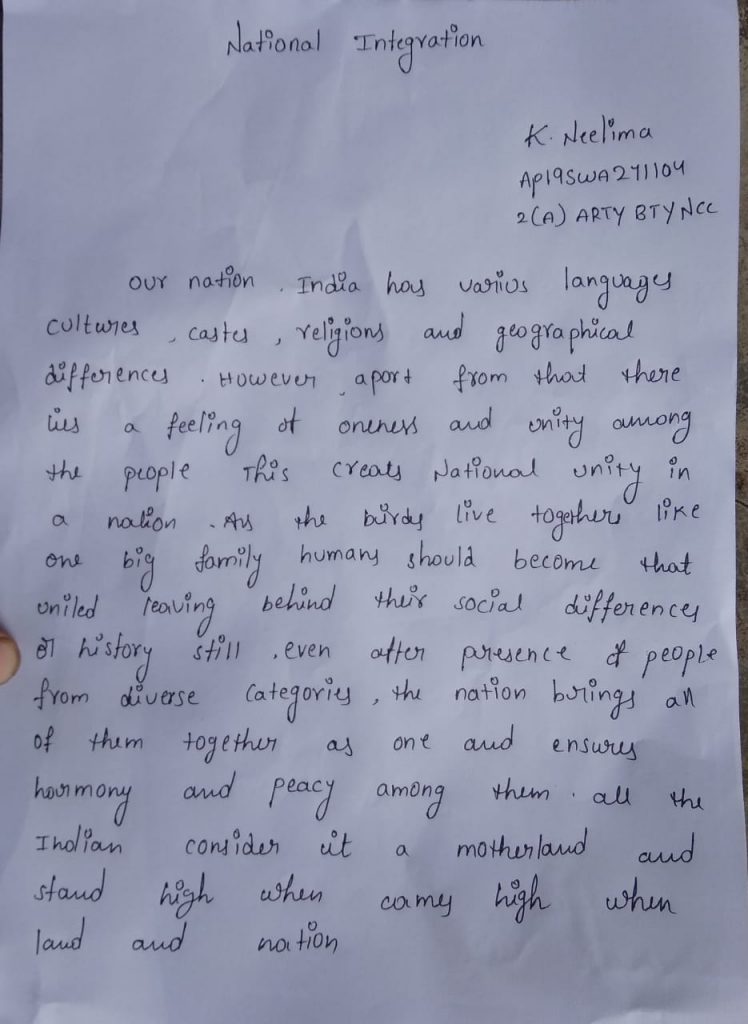 National Integration
K. Neelima
AP19SWA271104
2(A) ARTY BTY NCC
our nation . India has varius languages
cultures , castes , religions and geographical
differences . However , apart from that there
lies a feeling of oneness and unity among
the people This creats National unity in
a nation . As the birds live togethers like
one big family humans should become that
united leaving behind their social differences
or history still . even after presence of people
from diverse categories , the nation brings all
of them together as one and ensures
harmony and peacy among them . all the
Indian consider it a motherland and
stand high when comes high when
land and nation